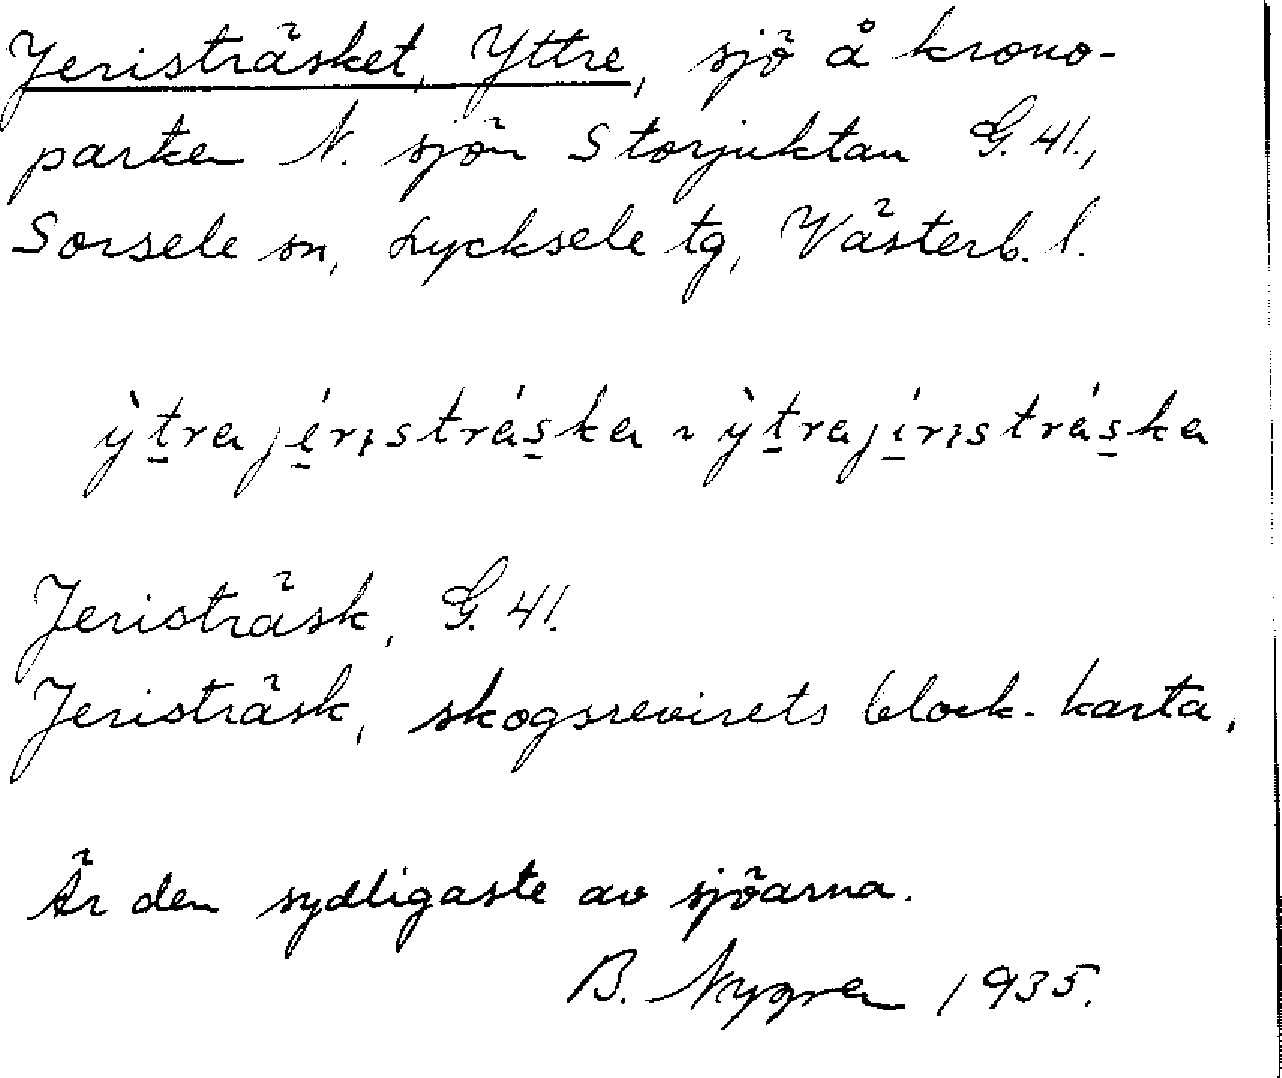 Jeristräsket, Yttre, sjö å krono-
parken N. sjön Storjuktan G. 41.,
Sorsele sn, Lycksele tg, Västerb. l.
ỳt̲raję́ristráska ~ ỳt̲rají̲ristráska
Jeristräsk, G. 41.
Jeristräsk, skogsrevirets block-karta.
Är den sydligaste av sjöarna.
B. Nygren 1935.